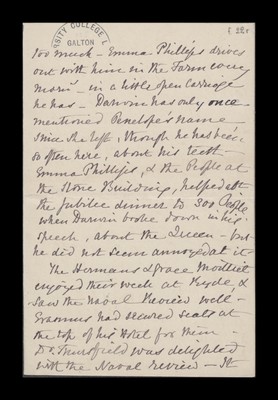 SITY COLLEGE L
GALTON
f. 22r
too much - Emma Phillips drives
out with him in the Farm every
morn - in a little open Carriage
he has - Darwin has only once
mentioned Penelope's name
since she left, though he has been
so often here, about his teeth -
Emma Phillips, & the People at
the Stone Building, helped at
the Jubilee dinner to 300 People
when Darwin broke down in his
speech, about the Queen - but
he did not seem annoyed at it -
The Hermans & Grace Moilliet
enjoyed their week at Ryde, &
saw the Naval Review well -
Erasmus had secured seats at
the top of his Hotel for them -
Dr. Mansfield was delighted
with the Naval Review - It